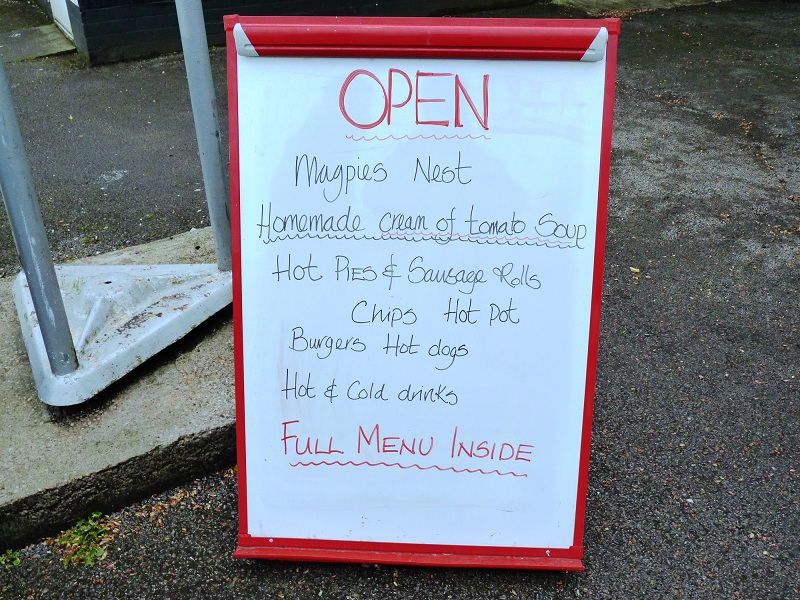 OPEN
Magpies Nest
Homemade cream of tomato Soup
Hot Pies & Sausage Rolls
Chips Hot Pot
Burgers Hot dogs
Hot & Cold drinks
FULL MENU INSIDE